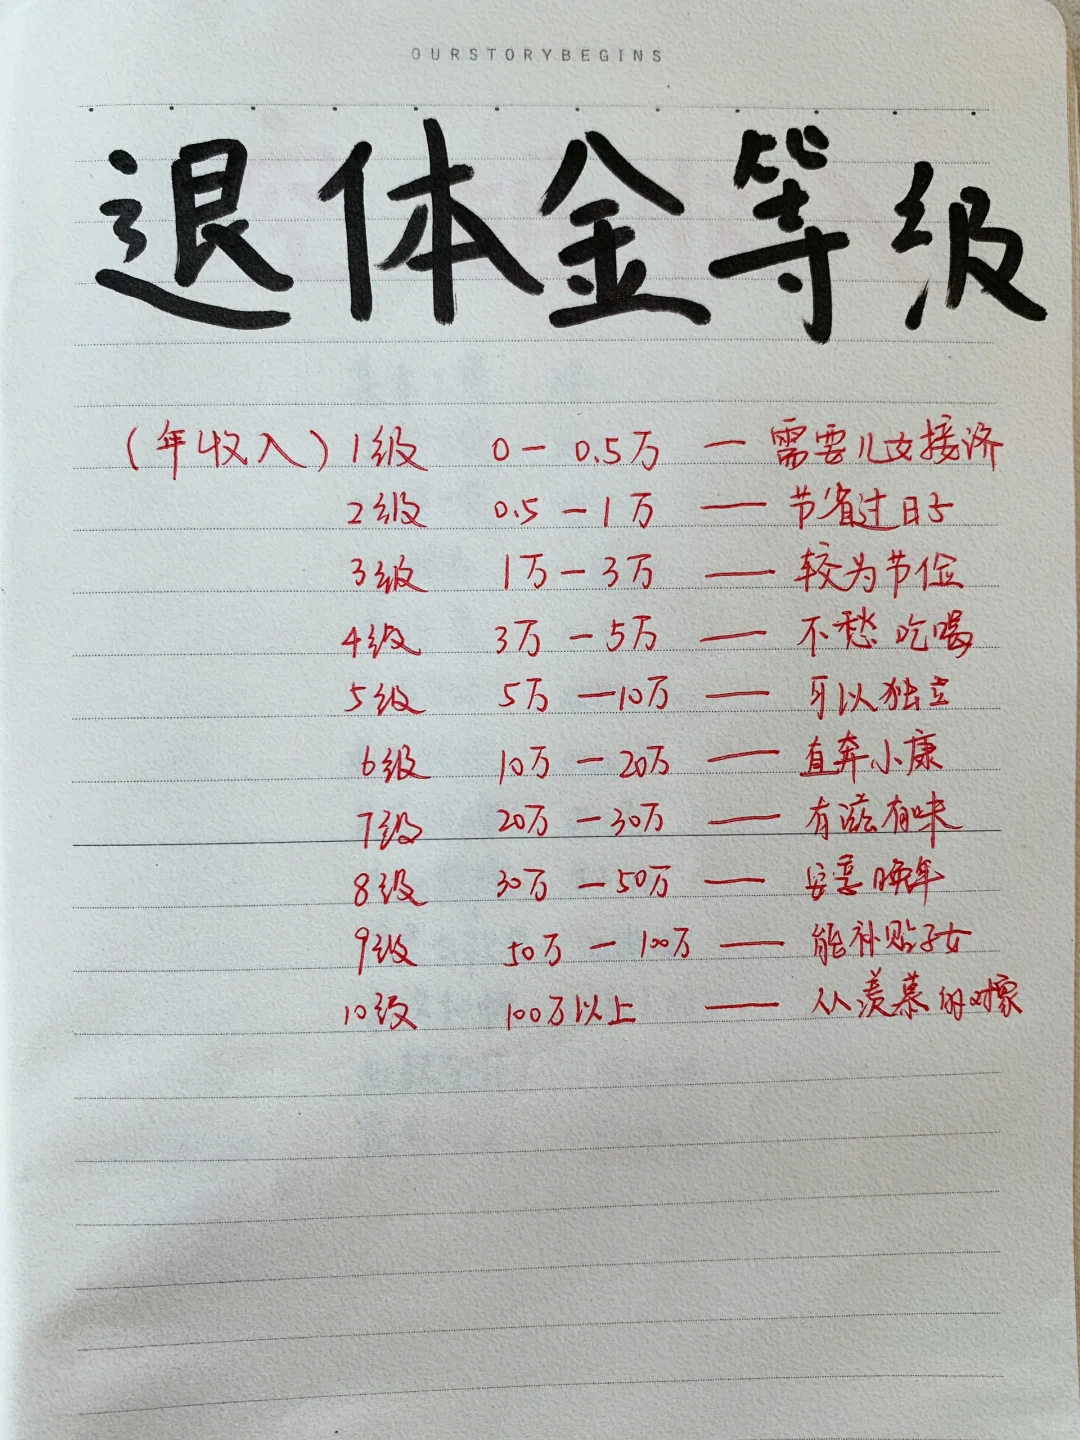 OURSTORYBEGINS
退休金等级
（年收入）1级 0－0.5万 — 需要儿女接济
2级 0.5－1万 — 节省过日子
3级 1万－3万 — 较为节俭
4级 3万－5万 — 不愁吃喝
5级 5万－10万 — 可以独立
6级 10万－20万 — 直奔小康
7级 20万－30万 — 有滋有味
8级 30万－50万 — 安享晚年
9级 50万－100万 — 能补贴子女
10级 100万以上 — 从羡慕的对象